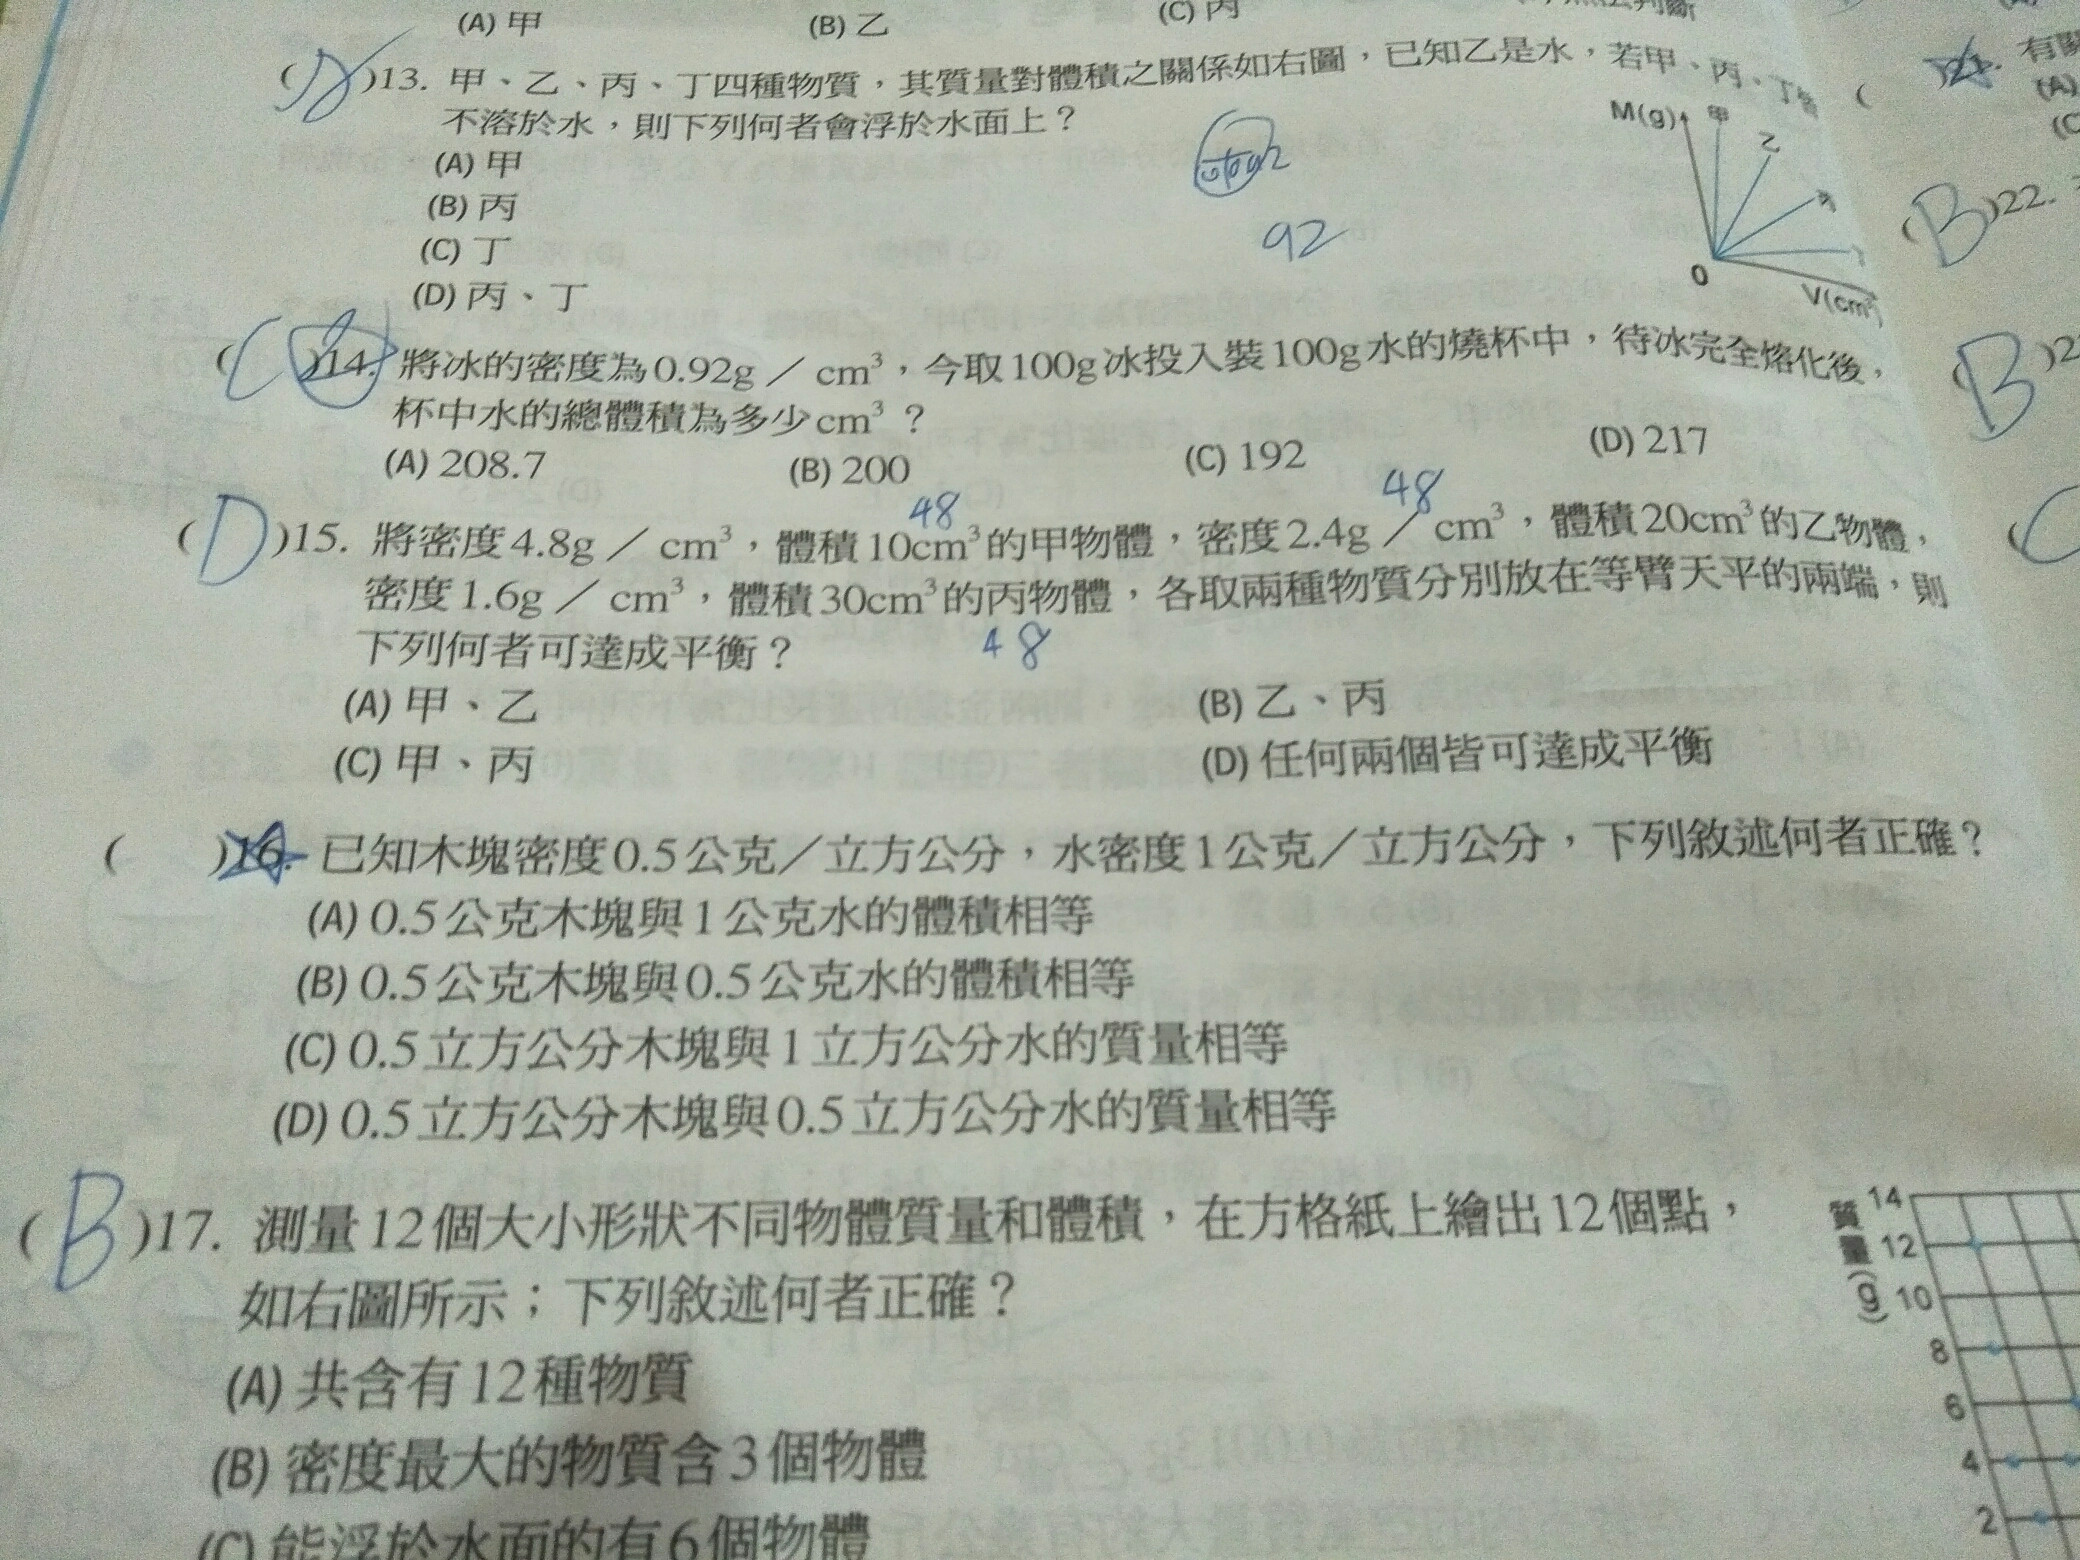 (A) 甲 (B) 乙 (C) 丙
( )13. 甲、乙、丙、丁四種物質，其質量對體積之關係如右圖，已知乙是水，若甲、丙、丁皆
不溶於水，則下列何者會浮於水面上？
(A) 甲
(B) 丙
(C) 丁
(D) 丙、丁
M(g) 甲 乙
0 V(cm³)
92
( )14. 將冰的密度為0.92g／cm³，今取100g冰投入裝100g水的燒杯中，待冰完全熔化後，
杯中水的總體積為多少cm³？
(A) 208.7 (B) 200 (C) 192 (D) 217
48 48
(D)15. 將密度4.8g／cm³，體積10cm³的甲物體，密度2.4g／cm³，體積20cm³的乙物體，
密度1.6g／cm³，體積30cm³的丙物體，各取兩種物質分別放在等臂天平的兩端，則
下列何者可達成平衡？
48
(A) 甲、乙 (B) 乙、丙
(C) 甲、丙 (D) 任何兩個皆可達成平衡
( )16. 已知木塊密度0.5公克／立方公分，水密度1公克／立方公分，下列敘述何者正確？
(A) 0.5公克木塊與1公克水的體積相等
(B) 0.5公克木塊與0.5公克水的體積相等
(C) 0.5立方公分木塊與1立方公分水的質量相等
(D) 0.5立方公分木塊與0.5立方公分水的質量相等
(B)17. 測量12個大小形狀不同物體質量和體積，在方格紙上繪出12個點，
如右圖所示；下列敘述何者正確？
(A) 共含有12種物質
(B) 密度最大的物質含3個物體
(C) 能浮於水面的有6個物體
質量(g)
14
12
10
8
6
4
2
有關
(A)
(C
(B)22.
B